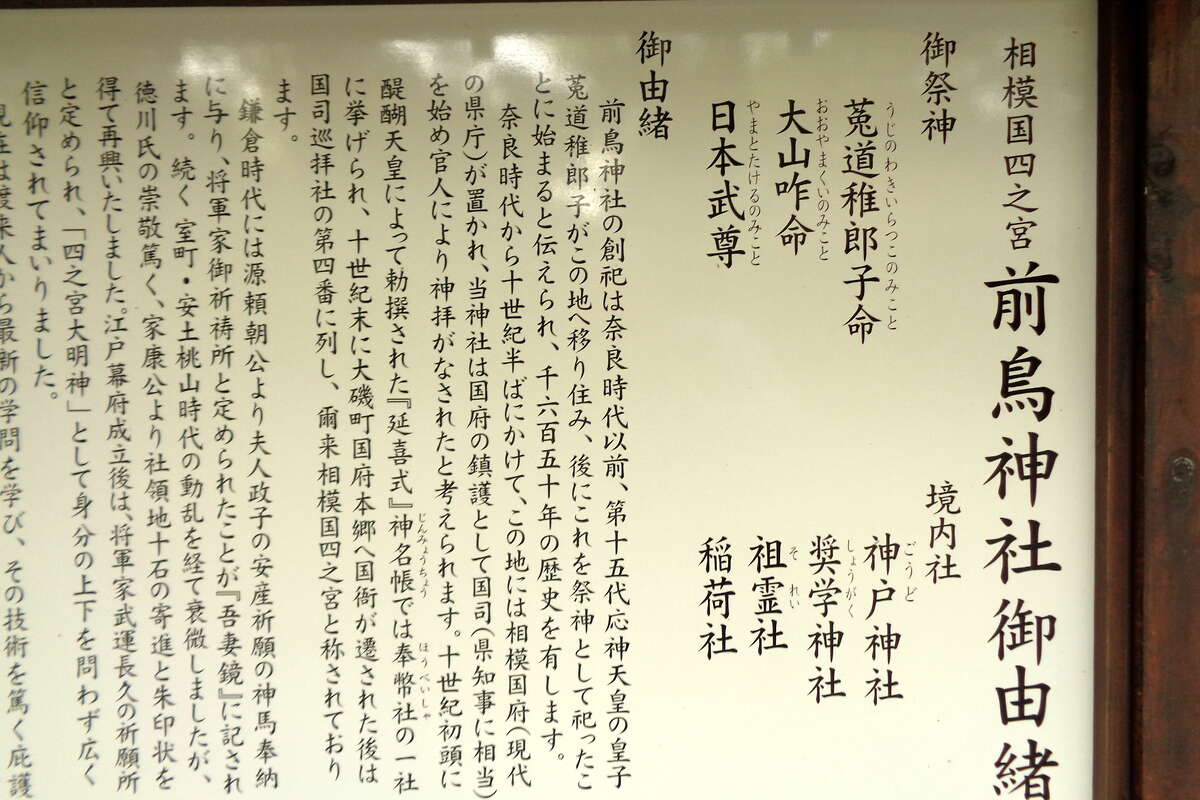 相模国四之宮 前鳥神社御由緒
御祭神
菟道稚郎子命
うじのわきいらつこのみこと
大山咋命
おおやまくいのみこと
日本武尊
やまとたけるのみこと
境内社
神戸神社
ごうど
奨学神社
しょうがく
祖霊社
それい
稲荷社
御由緒
前鳥神社の創祀は奈良時代以前、第十五代応神天皇の皇子
菟道稚郎子がこの地へ移り住み、後にこれを祭神として祀ったこ
とに始まると伝えられ、千六百五十年の歴史を有します。
奈良時代から十世紀半ばにかけて、この地には相模国府(現代
の県庁)が置かれ、当神社は国府の鎮護として国司(県知事に相当)
を始め官人により神拝がなされたと考えられます。十世紀初頭に
醍醐天皇によって勅撰された『延喜式』神名帳では奉幣社の一社
じんみょうちょう
ほうべいしゃ
に挙げられ、十世紀末に大磯町国府本郷へ国衙が遷された後は
国司巡拝社の第四番に列し、爾来相模国四之宮と称されており
ます。
鎌倉時代には源頼朝公より夫人政子の安産祈願の神馬奉納
に与り、将軍家御祈祷所と定められたことが『吾妻鏡』に記され
ます。続く室町・安土桃山時代の動乱を経て衰微しましたが、
徳川氏の崇敬篤く、家康公より社領地十石の寄進と朱印状を
得て再興いたしました。江戸幕府成立後は、将軍家武運長久の祈願所
と定められ、「四之宮大明神」として身分の上下を問わず広く
信仰されてまいりました。
現在は渡来人から最新の学問を学び、その技術を篤く庇護